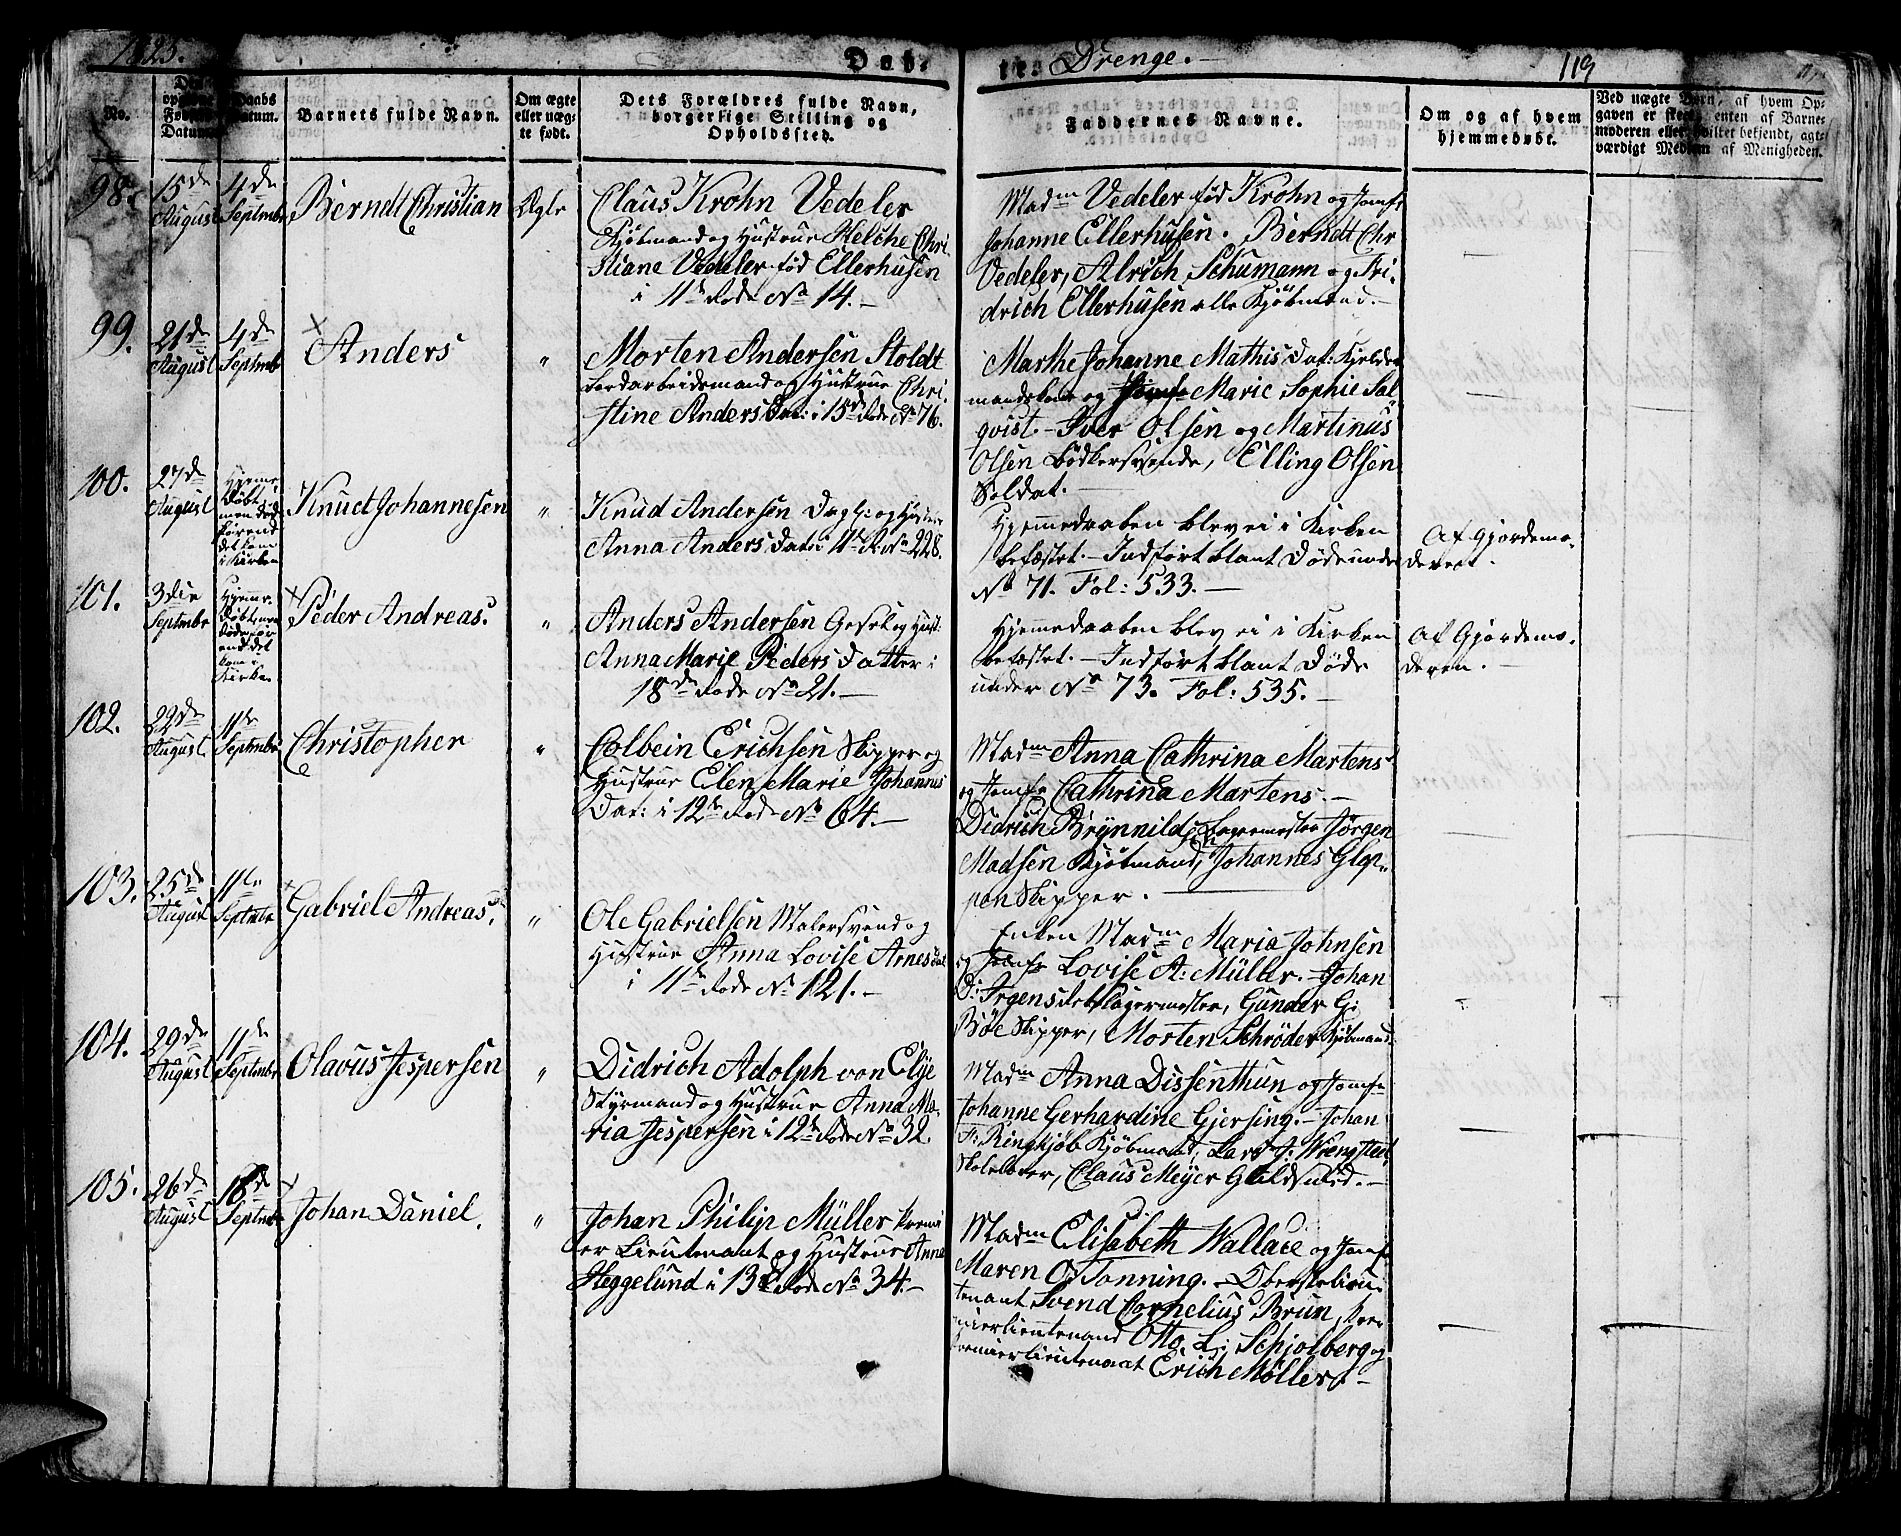 1825.
Daab. Drenge.
119
No.
Fødsels Datum.
Daabs Datum.
Barnets fulde Navn.
Om ægte
eller uæg-
te født.
Dets Forældres fulde Navn,
borgerlige Stilling og
Opholdssted.
Faddernes Navne.
Om og af hvem
hjemmedøbt.
Ved uægte Børn, af hvem Op-
gaven er skeet, enten af Barne-
moderen eller hvilket bekjendt, agt-
værdigt Medlem af Menigheden.
98.
15de
August
4de
Septmbr
Berndt Christian
Ægte
Claus Krohn Vedeler
Kjøbmand og Hustrue Helche Chri
stiane Vedeler fød Ellerhusen
i 11te Rode No 14.
Madm Vedeler fød Krohn og Jomfr
Johanne Ellerhusen. Berndt Chr
Vedeler, Alrich Schumann og Fri-
drich Ellerhusen alle Kjøbmænd.
99.
21de
August
4de
Septmbr
Anders
"
Morten Andersen Stoldt
Jordarbeidsmand og Hustrue Chri
stine Anders Dat: i 15de Rode No 76.
Marthe Johanne Mathis Dat:
og Marie Sophie Sal
qvist Iver Olsen og Martinus
Olsen Bødkersvende, Elling Olsen
Soldat.
100.
27de
August
Hjemme
døbt,
men død
førend
det kom
i Kirken
Knud Johannesen
"
Knud Andersen Dagl: og Hustrue
Anna Anders Dat: i 4de R. No 228.
Hjemmedaaben blev ei i Kirken
befæstet. Indført blant Døde under
No 71. Fol: 533.
Af Gjordemo-
deren.
101.
3die
Septmbr
Hjemme-
døbt, men
døde før
end det
kom i
Kirken
Peder Andreas.
"
Anders Andersen og Hust:
Anna Marie Peders Datter i
18de Rode No 21.
Hjemmedaaben blev ei i Kirken
befæstet. Indført blant Døde
under No 73. Fol: 535.
Af Gjordemo-
deren.
102.
22de
August
11te
Septmbr
Christopher
"
Colbein Erichsen Skipper og
Hustrue Elen Marie Johannes
Dat: i 12te Rode No 64.
Madm Anna Cathrina Martens
og Jomfr Cathrina Martens.
Didrich Brynnild Bagermester Jørgen
Madsen Kjøbmand, Johannes Glop-
pen Skipper.
103.
25de
August
11te
Septmbr
Gabriel Andreas.
"
Ole Gabrielsen Malersvend og
Hustrue Anna Lovise Arnes Dat
i 11te Rode No 121.
Enken Madm Maria Johnsen
og Jomfr Lovise A: Müller. Johan
D: Irgens Reebslagermester, Gunder G:
Bøe Skipper, Morten Schrøder Kjøbmand
104.
29de
August
11te
Septmbr
Olavus Jespersen
"
Didrich Adolph von Elye
Styrmand og Hustrue Anna Ma-
ria Jespersen i 12te Rode No 32.
Madm Anna Dissenthun og Jomfr
Johanne Gerhardine Gjersing. Johan
F: Ringkjøb Kjøbmand, Lars J:
Skolelærer, Claus Meyer Guldsmed.
105.
26de
August
18de
Septmbr
Johan Daniel.
"
Johan Philip Müller Premi
er Lieutenant og Hustrue Anna
Heggelund i 13de Rode No 34.
Madm Elisabeth Wallace og Jomfr
Maren O Tonning. Oberstelieu-
tenant Svend Cornelius Brun, Pre-
mierlieutenand Otto L: Schjolberg og
Premierlieutenant Erich Møller